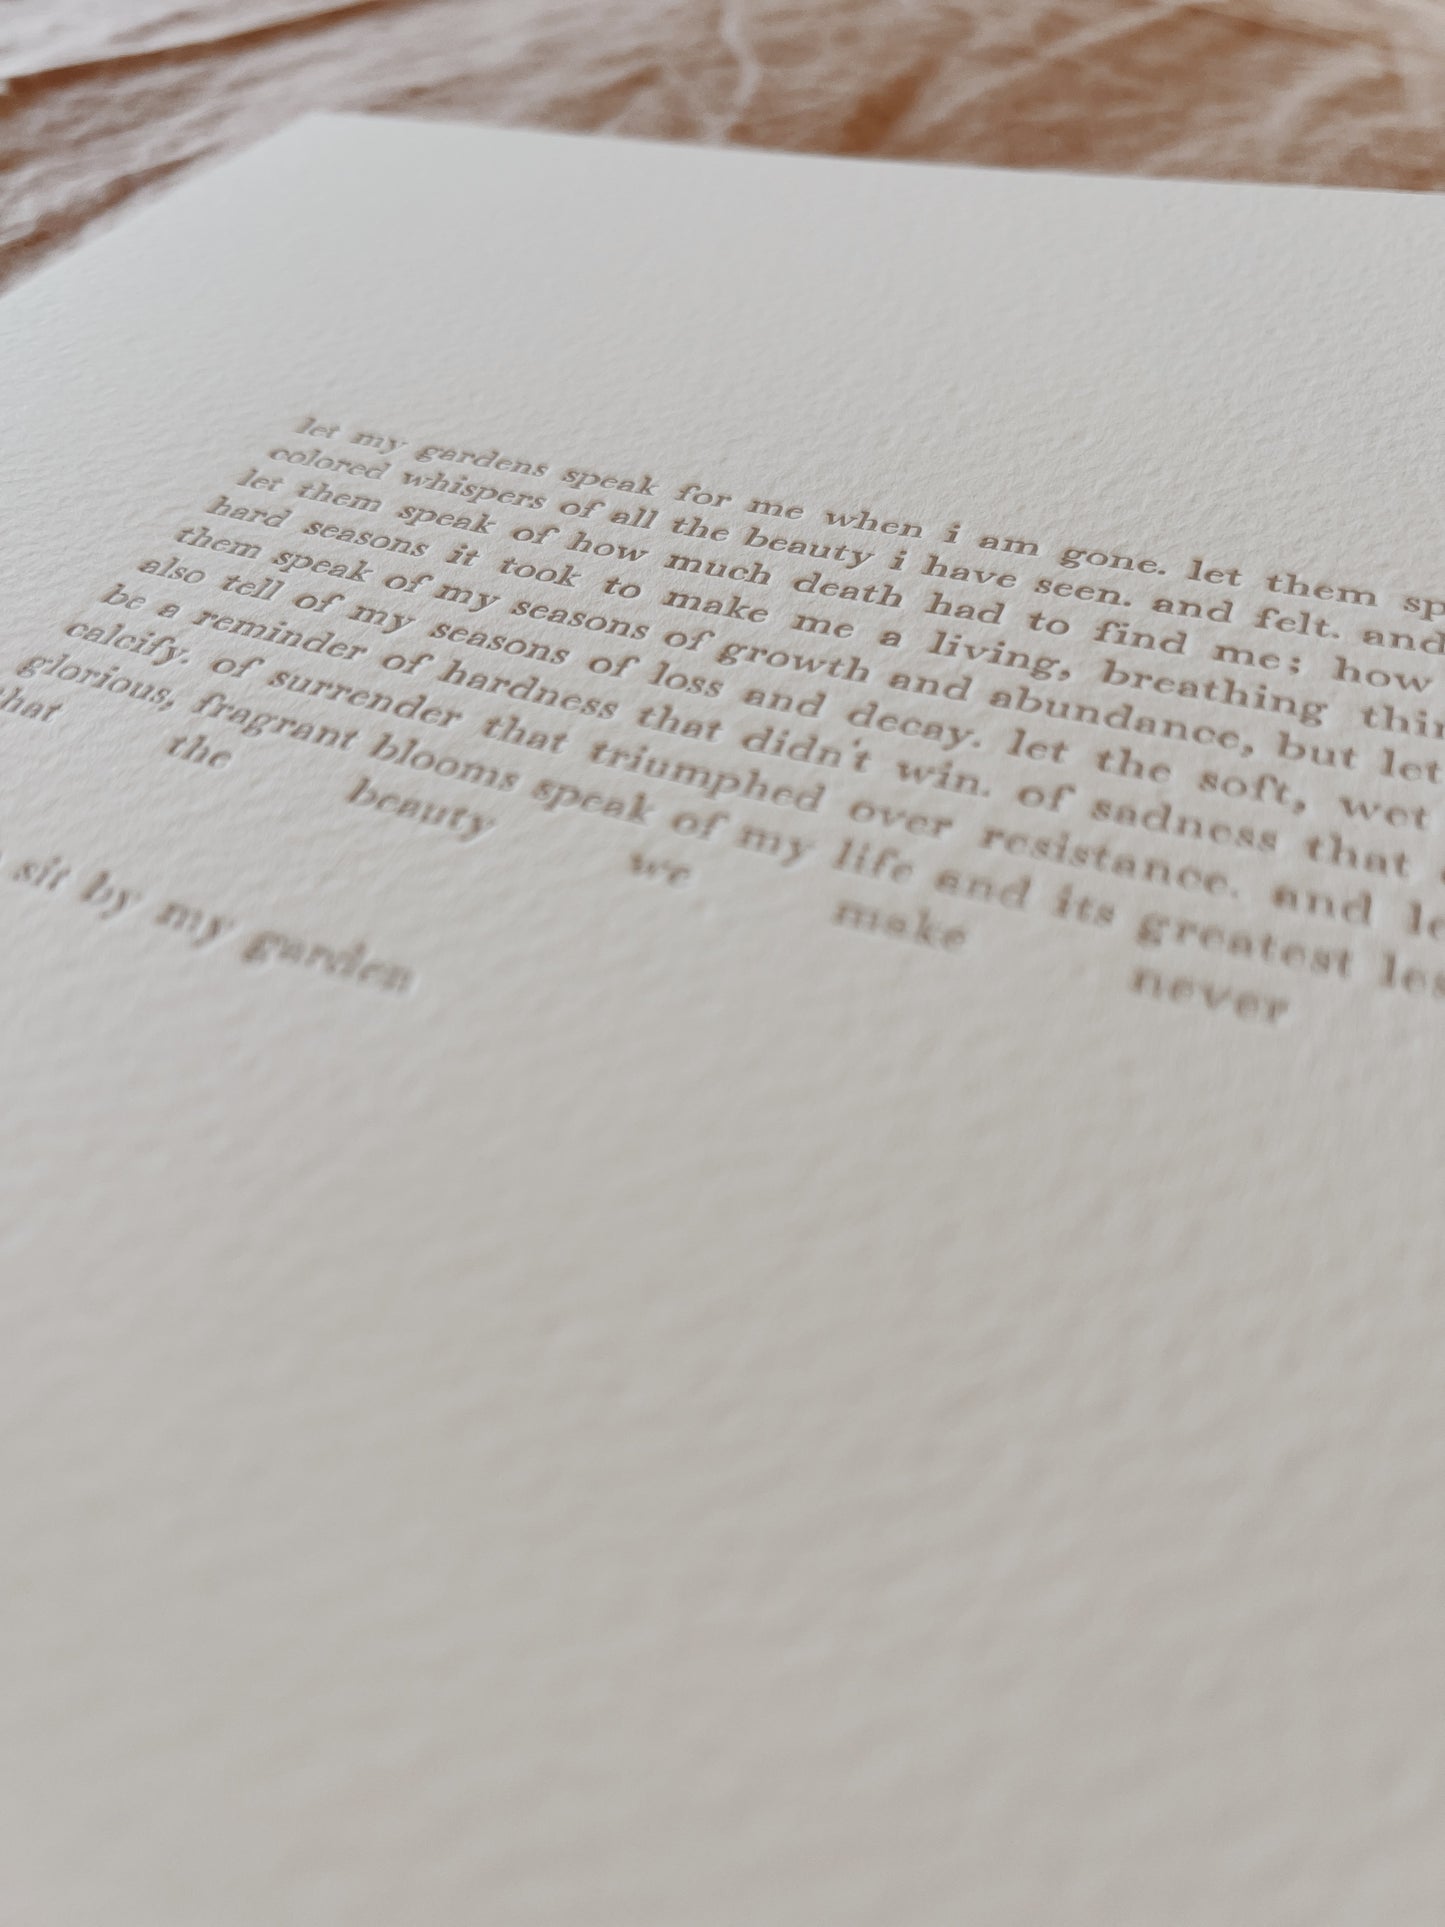 let my gardens speak for me when i am gone. let them sp
colored whispers of all the beauty i have seen. and felt. and
let them speak of how much death had to find me; how
hard seasons it took to make me a living, breathing thin
them speak of my seasons of growth and abundance, but let
also tell of my seasons of loss and decay. let the soft, wet
be a reminder of hardness that didn't win. of sadness that
calcify. of surrender that triumphed over resistance. and le
glorious, fragrant blooms speak of my life and its greatest les
that the beauty we make never
sit by my garden